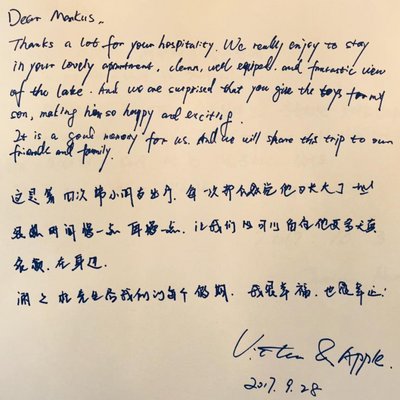 Dear Markus,
Thanks a lot for your hospitality. We really enjoy to stay
in your lovely apartment, clean, well equiped. and fantastic view
of the lake. And we are surprised that you give the toys for my
son, making him so happy and exciting.
It is a good memory for us. And we will share this trip to our
friends and family.
这是第四次带小周着出行. 每一次都感觉他又长大了
时间慢一点 再慢一点. 让我们
在身边.
我很幸福. 也很幸运!
& Apple.
2017. 9. 28